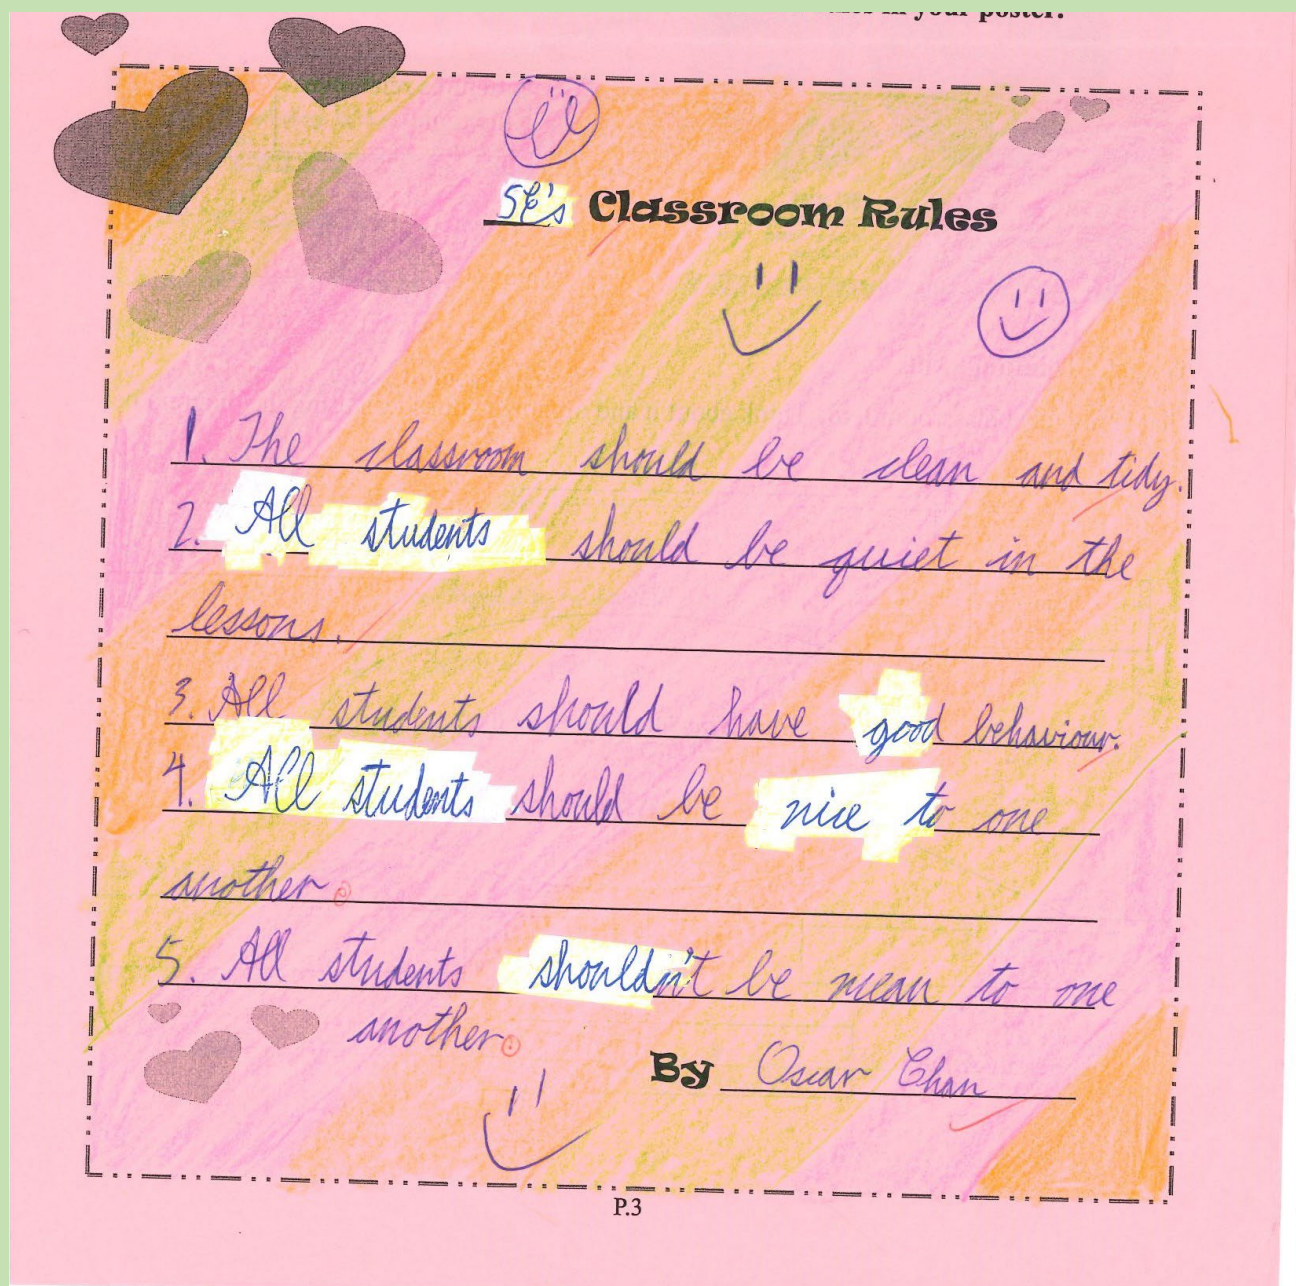 in your poster.
5E's Classroom Rules
1. The classroom should be clean and tidy.
2. All students should be quiet in the
lessons.
3. All students should have good behaviour.
4. All students should be nice to one
another.
5. All students shouldn't be mean to one
another.
By Oscar Chan
P.3